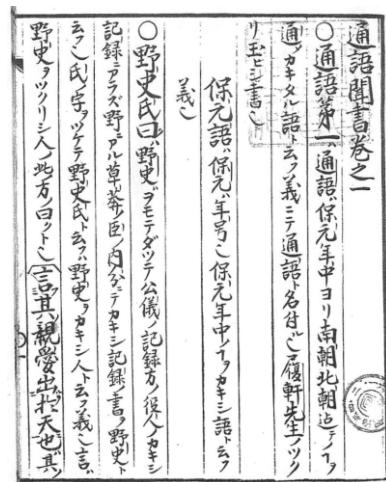 通語聞書巻之一
〇通語第一通語ハ保元年中ヨリ南朝北朝迄テノヿヲ
通ノカキタル語ト云フ義ニテ通語ト名付ル也履軒先生ノツク
リ玉ヒシ書也
保元語ハ保元ハ年号也保元年中ノヿヲカキシ語ト云フ
義也
〇野史氏曰ハ野史ヲモテダツテ公儀ノ記録方ノ役人ノカキシ
記録ニアラズ野ニアル草莽ノ臣ノ内分ニテカキシ記録ノ書ヲ野史ト
云フ也氏ノ字ヲツケテ野史氏ト云フハ野史ヲカキシ人ト云フ義也言ハ
野史ヲツクリシ人ノ此方ノ曰クト也言其親愛出於天也其